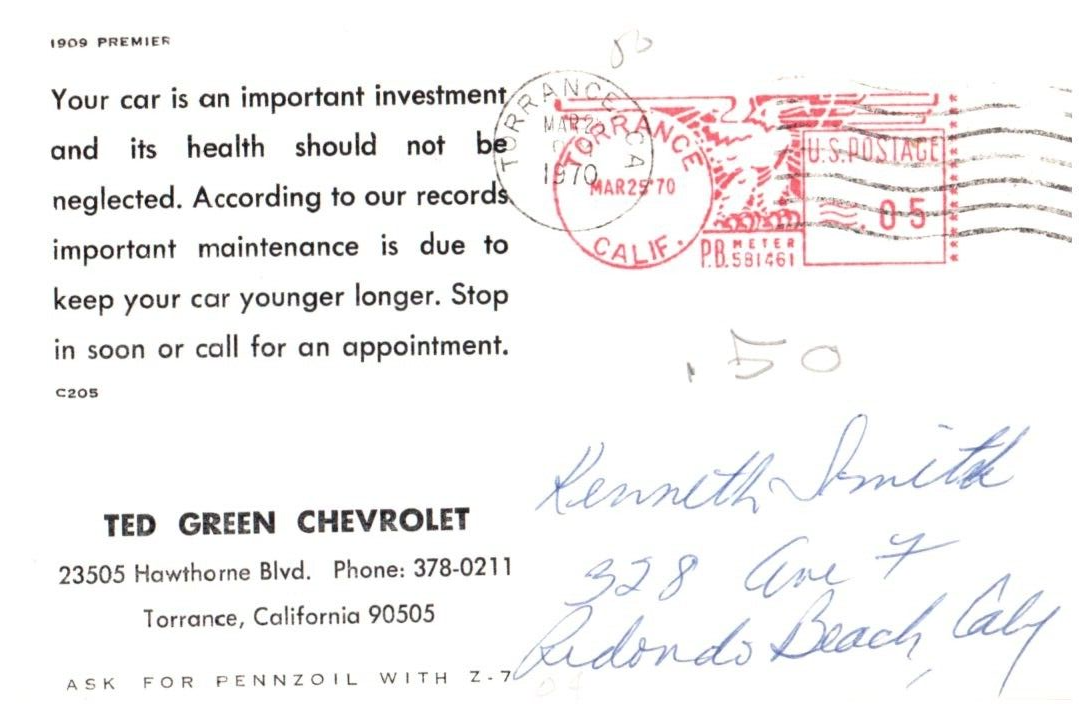 1909 PREMIER
Your car is an important investment
and its health should not be
neglected. According to our records
important maintenance is due to
keep your car younger longer. Stop
in soon or call for an appointment.
C205
TED GREEN CHEVROLET
23505 Hawthorne Blvd. Phone: 378-0211
Torrance, California 90505
ASK FOR PENNZOIL WITH Z-7
TORRANCE, CA
MAR 2
1970
TORRANCE
MAR25'70
CALIF.
P.B. METER
581461
U.S. POSTAGE
.05
.50
Kenneth Smith
328 Ave F
Redondo Beach, Calif